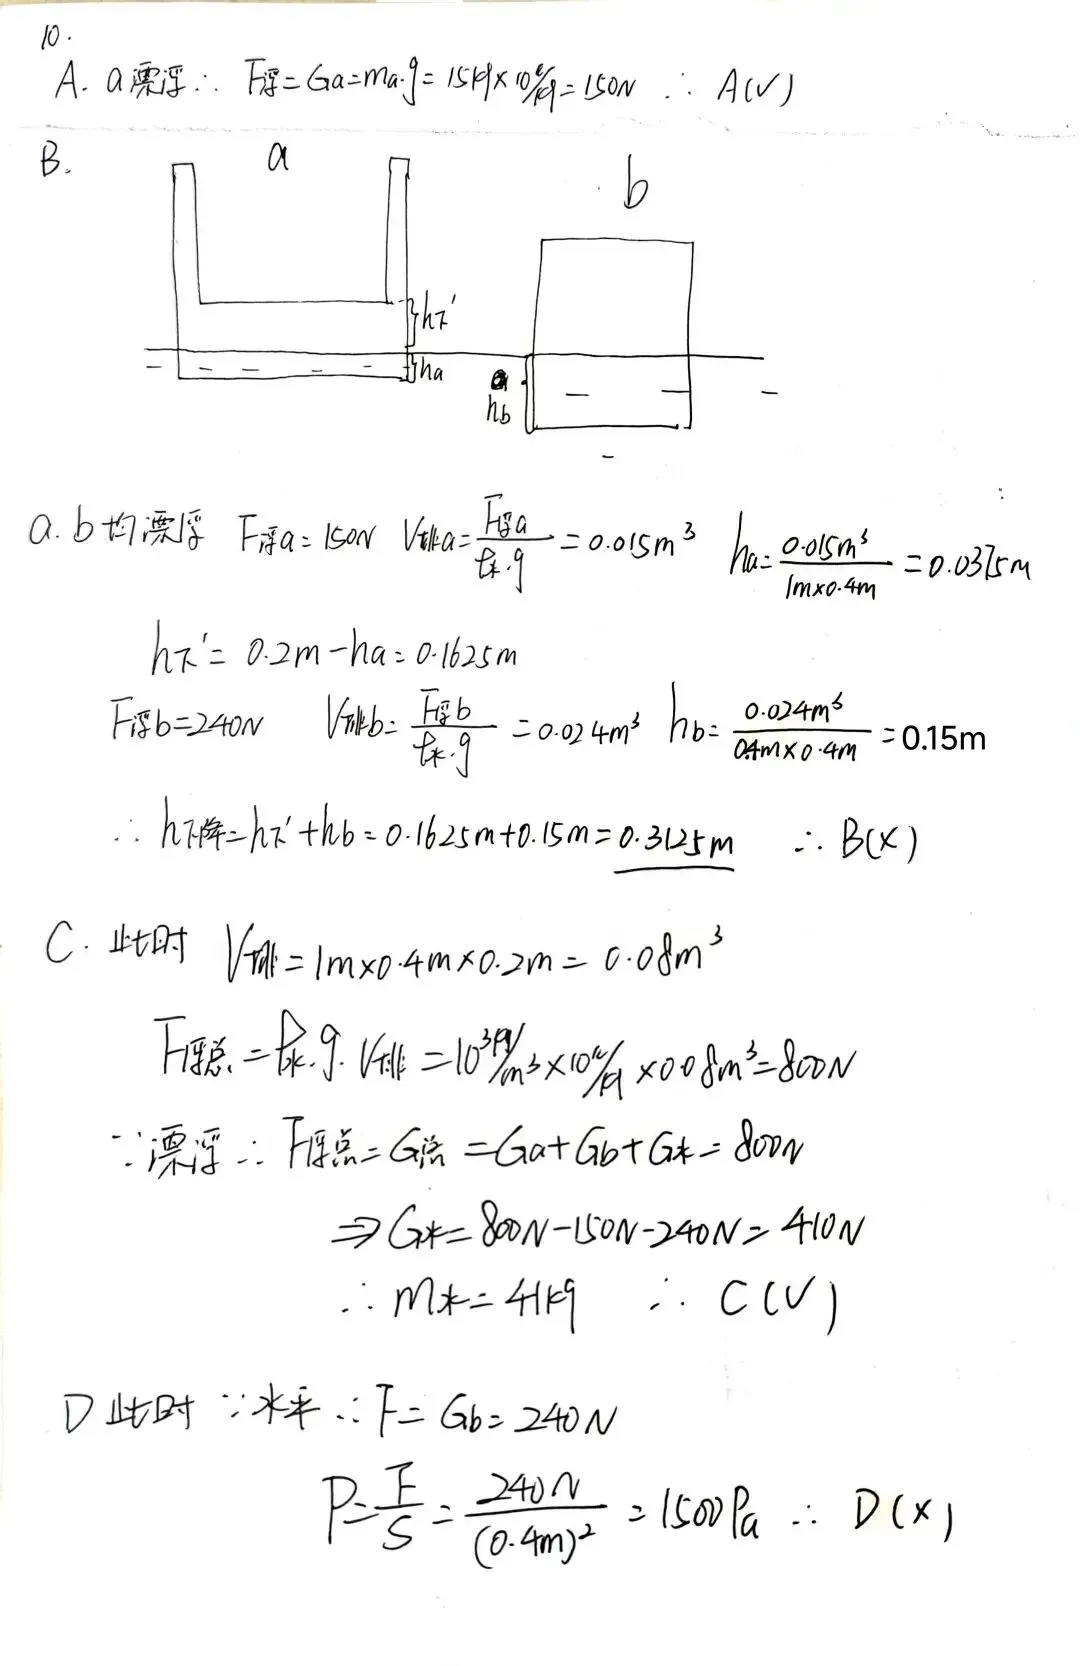 10.
A. a漂浮∴ F浮=Ga=ma·g=15kg×10N/kg=150N ∴ A(√)
B.
a
b
h下′
ha
hb
a.b均漂浮 F浮a=150N V排a=F浮a/ρ水·g=0.015m³ ha=0.015m³/1m×0.4m=0.0375m
h下′=0.2m-ha=0.1625m
F浮b=240N V排b=F浮b/ρ水·g=0.024m³ hb=0.024m³/0.4m×0.4m=0.15m
∴ h下降=h下′+hb=0.1625m+0.15m=0.3125m ∴ B(×)
C. 此时 V排=1m×0.4m×0.2m=0.08m³
F浮总=ρ水·g·V排=10³kg/m³×10N/kg×0.08m³=800N
∵漂浮∴ F浮总=G总=Ga+Gb+G水=800N
⇒G水=800N-150N-240N=410N
∴ m水=41kg ∴ C(√)
D 此时 ∵水平∴F=Gb=240N
P=F/S=240N/(0.4m)²=1500Pa ∴ D(×)